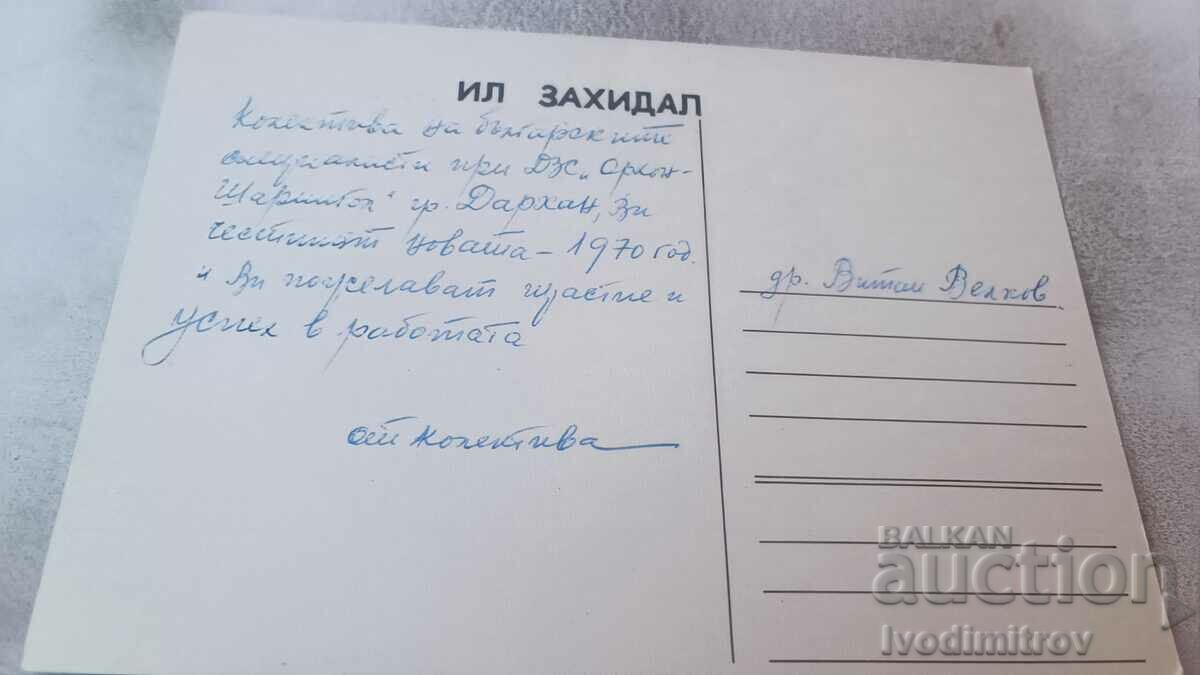 ИЛ ЗАХИДАЛ
Колектива на българските
специалисти при ДЗС „Орхон-
Шарингол" гр. Дархан, Ви
честитят новата – 1970 год.
и Ви пожелават щастие и
успех в работата
от колектива
др. Витан Велков
BALKAN
auction
Ivodimitrov